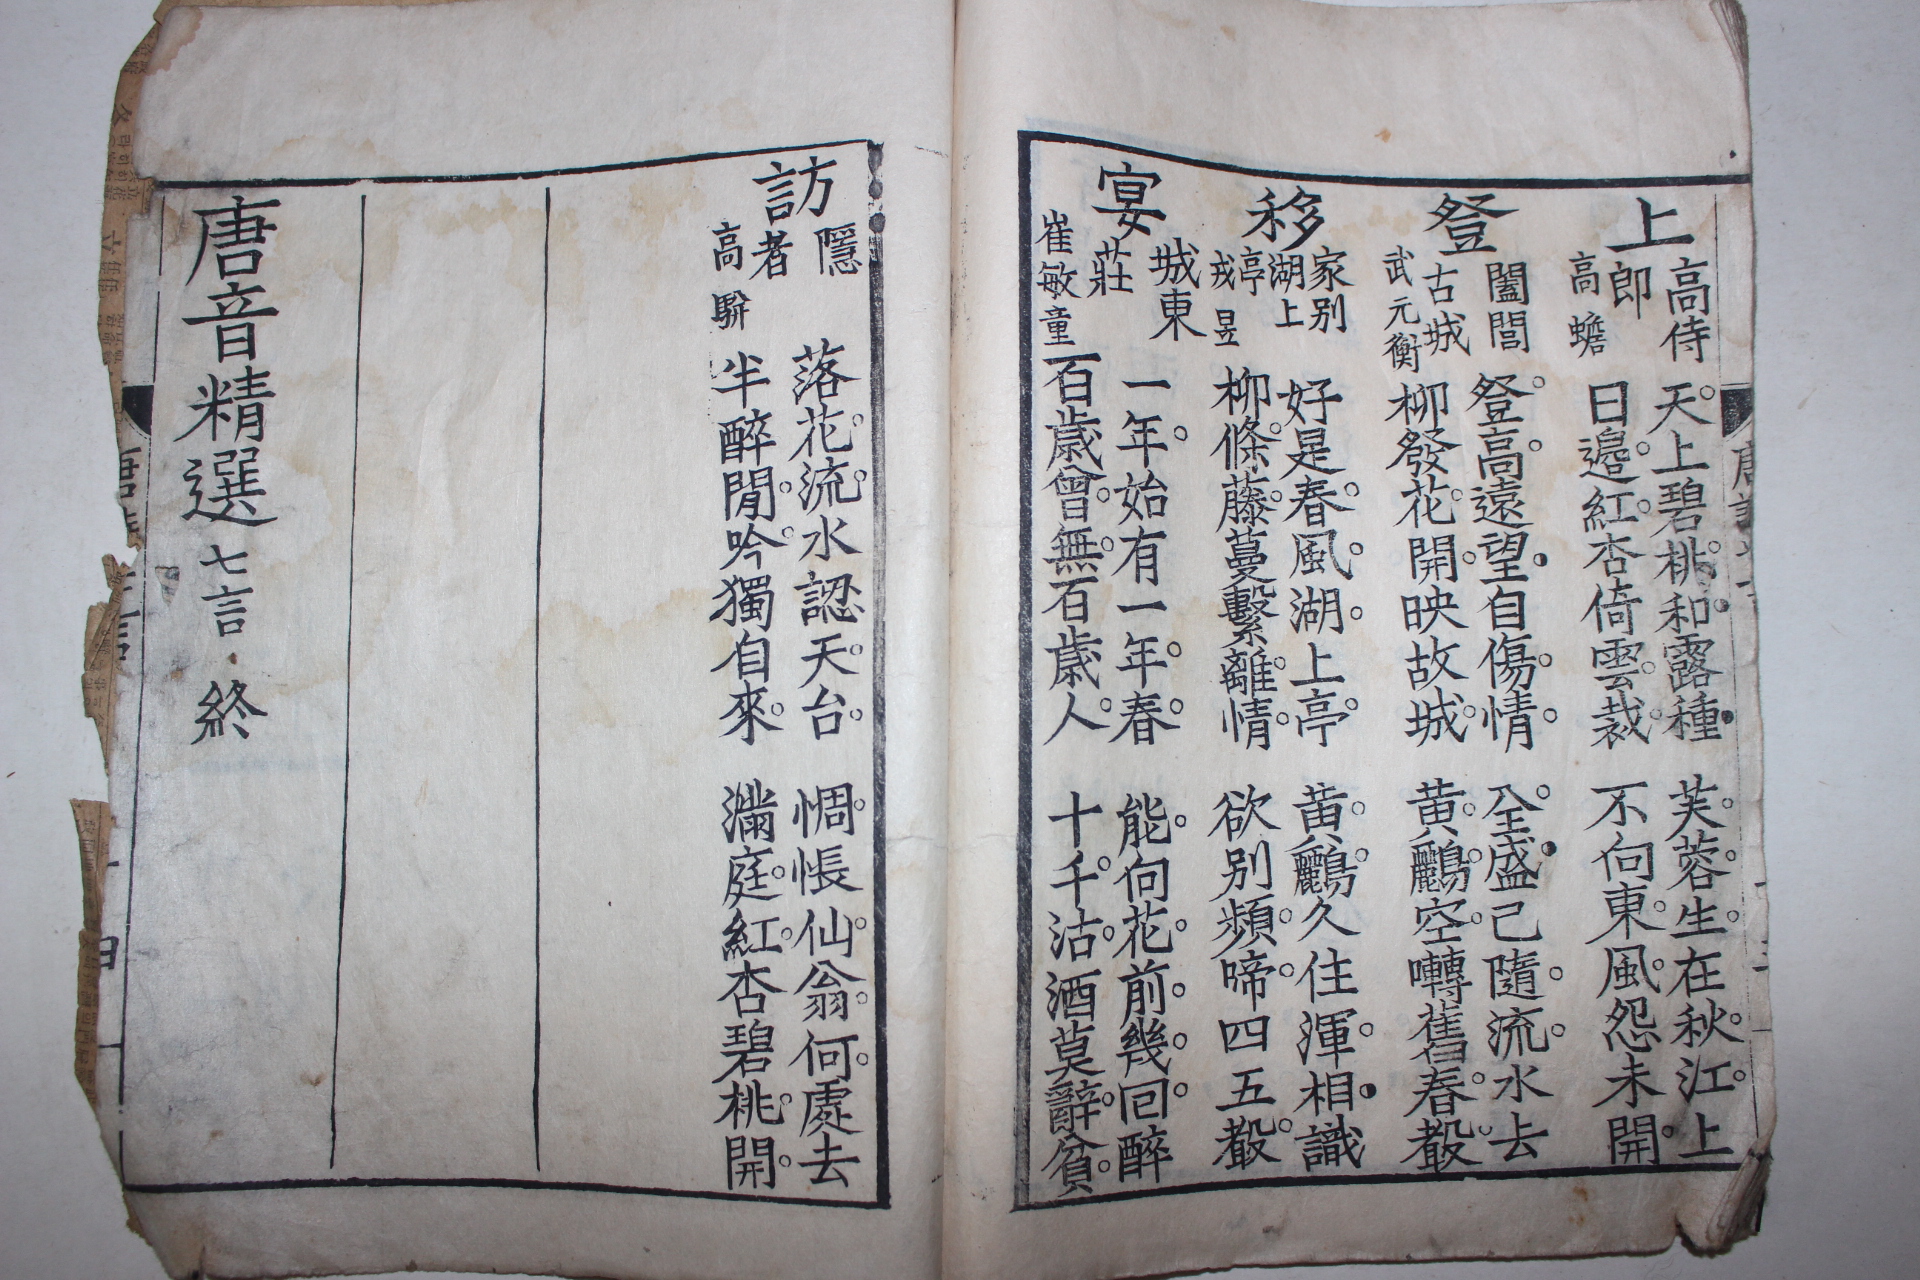 上高侍郎 高蟾
天上碧桃和露種 芙蓉生在秋江上
日邊紅杏倚雲裁 不向東風怨未開
登闔閭古城 武元衡
登高遠望自傷情 全盛已隨流水去
柳發花開映故城 黃鸝空囀舊春聲
移家別湖上亭 戎昱
好是春風湖上亭 黃鸝久住渾相識
柳條藤蔓繫離情 欲別頻啼四五聲
宴城東莊 崔敏童
一年始有一年春 能向花前幾回醉
百歲曾無百歲人 十千沽酒莫辭貧
訪隱者 高騈
落花流水認天台 惆悵仙翁何處去
半醉閒吟獨自來 滿庭紅杏碧桃開
唐音精選 七言 終